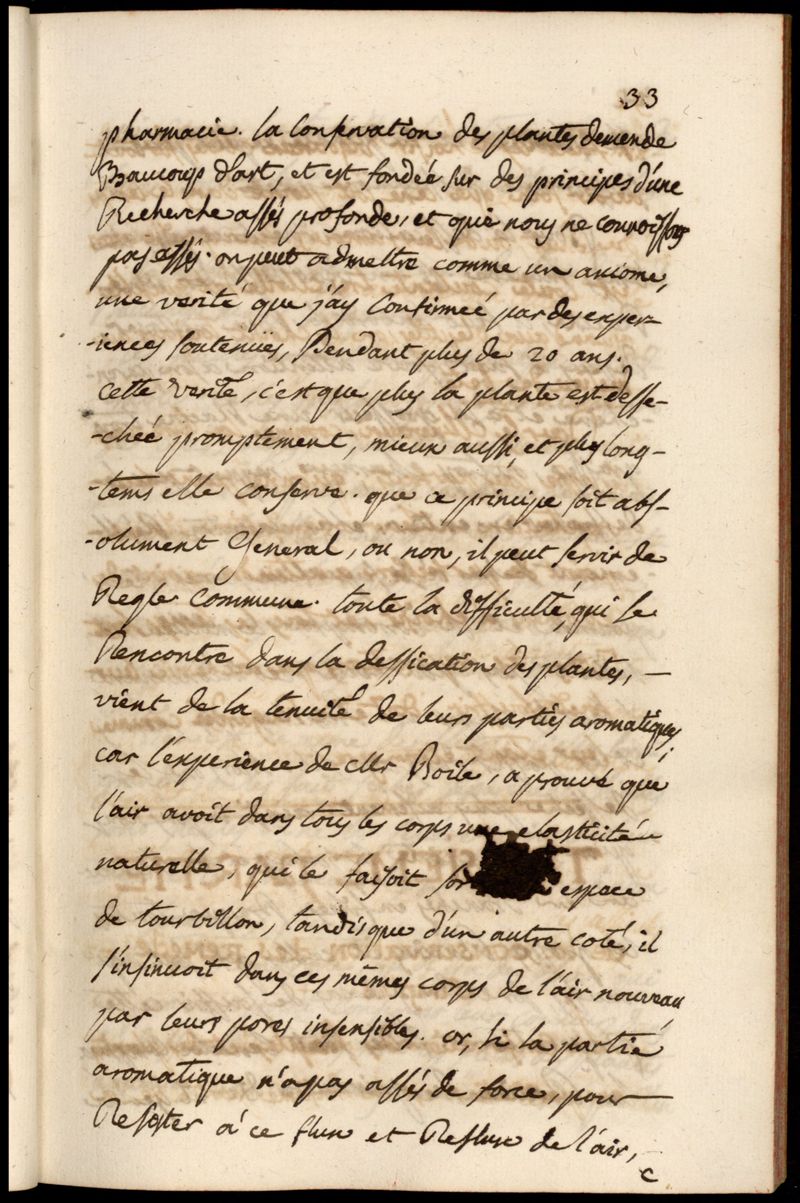 33
pharmacie. la Conservation des plantes demende
Beaucoup d'art, et est fondeé sur des principes d'une
Recherche assés profonde, et que nous ne connoissons
pas assés. on peut admettre comme un axiome,
une verité que j'ay Confirmeé par des exper-
-iences soutenuës, Pendant plus de 20 ans.
cette verité, c'est que plus la plante est desse-
-cheé promptement, mieux aussi, et plus long-
-tems elle conserve. que ce principe soit abs-
-olument General, ou non, il peut servir de
Regle commune. toute la difficulté, qui se
Rencontre dans la dessication des plantes, —
vient de la tenuité de leurs parties aromatiques,
car l'experience de Mr Boile, a prouvé que
l'air avoit dans tous les corps une elasticité
naturelle, qui le faisoit espace
de tourbillon, tandis que d'un autre coté, il
s'insinuoit dans ces mêmes corps de l'air nouveau
par leurs pores insensibles. or, si la partie
aromatique n'a pas assés de force, pour
Resister a ce flux et Reflux de l'air,
c